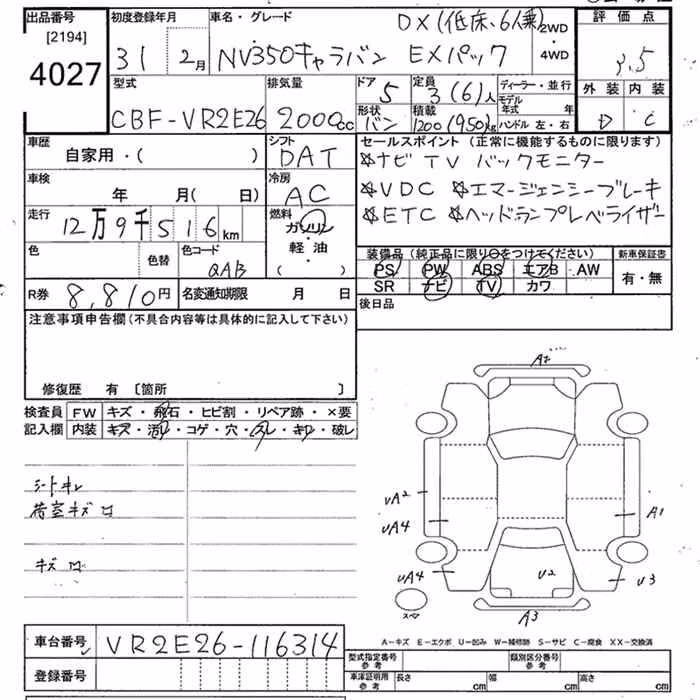 出品番号 初度登録年月 車名・グレード DX(低床・6人乗) 2WD・4WD 評価点
[2194]
4027 31 2月 NV350キャラバン EXパック 3.5
型式 排気量 ドア 定員 ディーラー・並行 外装 内装
5 3(6)人 モデル年式 年
CBF-VR2E26 2000cc 形状 積載 D C
バン 1200(950)kg ハンドル 左・右
車歴 シフト セールスポイント (正常に機能するものに限ります)
自家用・( ) DAT ☆ナビ TV バックモニター
車検 冷房 ☆VDC ☆エマージェンシーブレーキ
年 月( 日) AC ☆ETC ☆ヘッドランプレベライザー
走行 12万9千516km 燃料 ガソリン・軽・油 ( )
色 色替 色コード QAB
装備品 (純正品に限り○をつけてください) 新車保証書
PS PW ABS エアB AW 有・無
SR ナビ TV カワ
R券 8,810円 名変通知期限 月 日 後日品
注意事項申告欄(不具合内容等は具体的に記入して下さい)
修復歴 有 〔箇所 〕
検査員 FW キズ・飛石・ヒビ割・リペア跡・×要
記入欄 内装 キズ・汚れ・コゲ・穴・スレ・キレ・破レ
シートキレ
荷室キズ凹
キズ凹
A2
UA2
UA4
A1
UA4
U2
U3
スペア
A3
A-キズ E-エクボ U-凹み W-補修跡 S-サビ C-腐食 XX-交換済
車台番号 VR2E26-116314
登録番号
型式指定番号 参考 類別区分番号 参考
車庫証明用 参考 長さ cm 幅 cm 高さ cm